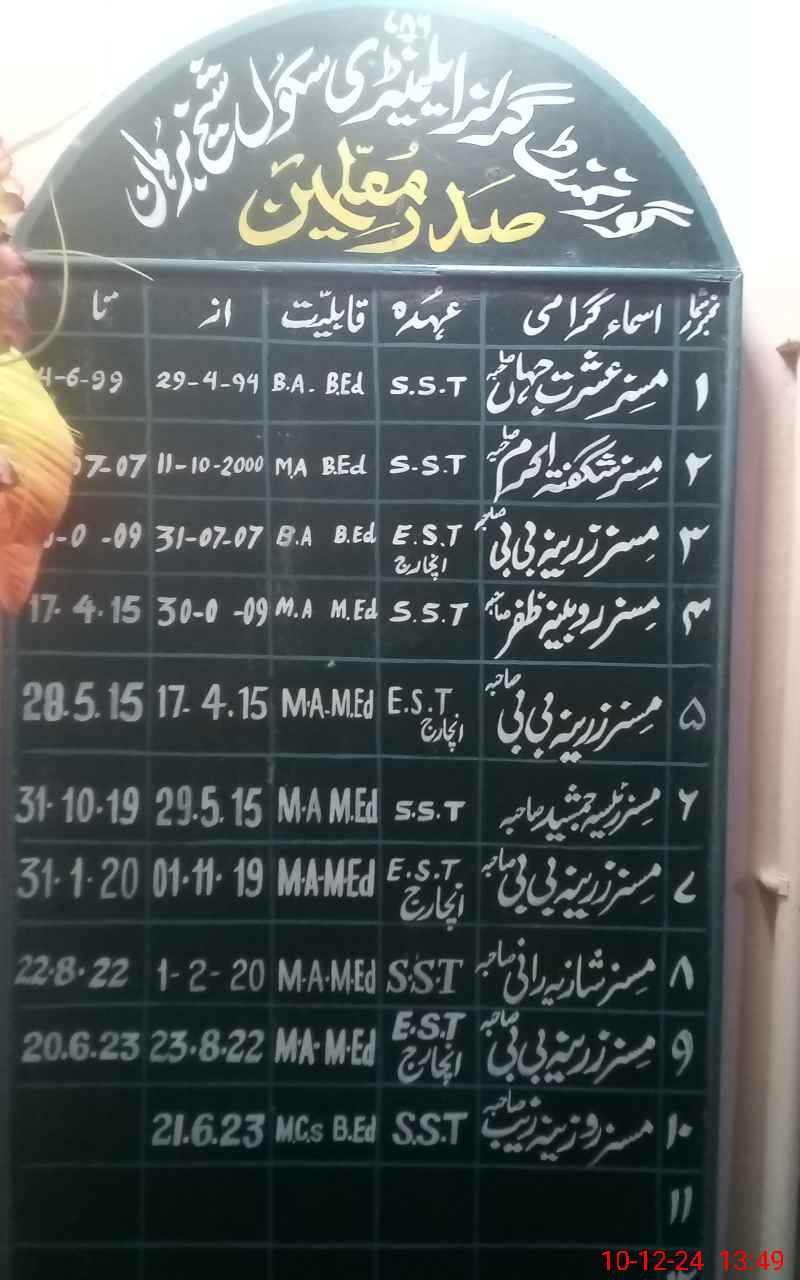 ۷۸۶
گورنمنٹ گرلز ایلیمنٹری سکول شیخ برہان
صدر معلمین
نمبر شمار اسماء گرامی عہدہ قابلیت از تا
۱ مسز عشرت جہاں صاحبہ S.S.T B.A. B.Ed 29-4-94 4-6-99
۲ مسز شگفتہ اکرم صاحبہ S.S.T M.A B.Ed 11-10-2000 07-07
۳ مسز زرینہ بی بی صاحبہ E.S.T انچارج B.A B.Ed 31-07-07 -0 -09
۴ مسز روبینہ ظفر صاحبہ S.S.T M.A M.Ed 30-0 -09 17.4.15
۵ مسز زرینہ بی بی صاحبہ E.S.T انچارج M.A.M.Ed 17.4.15 28.5.15
۶ مسز رئیسہ جمشید صاحبہ S.S.T M.A M.Ed 29.5.15 31.10.19
۷ مسز زرینہ بی بی صاحبہ E.S.T انچارج M.A.M.Ed 01.11.19 31.1.20
۸ مسز شازیہ رانی صاحبہ S.S.T M.A.M.Ed 1-2-20 22.8.22
۹ مسز زرینہ بی بی صاحبہ E.S.T انچارج M.A.M.Ed 23.8.22 20.6.23
۱۰ مسز روزینہ زیب صاحبہ S.S.T M.Cs B.Ed 21.6.23
۱۱
10-12-24 13:49